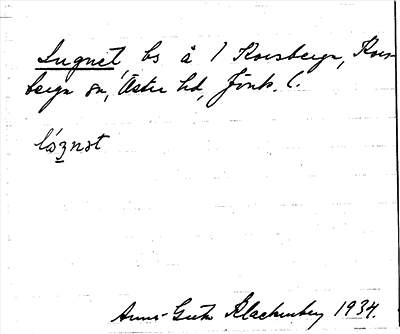 Lugnet, bs å 1 Korsberga, Kors-
berga sn, Östra hd, Jönk. l.
Anna-Greta Klackenberg 1934.